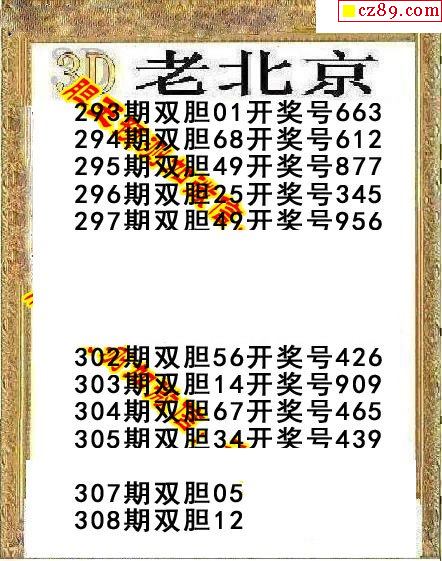 cz89.com
3D 老北京
293期双胆01开奖号663
294期双胆68开奖号612
295期双胆49开奖号877
296期双胆25开奖号345
297期双胆49开奖号956
302期双胆56开奖号426
303期双胆14开奖号909
304期双胆67开奖号465
305期双胆34开奖号439
307期双胆05
308期双胆12